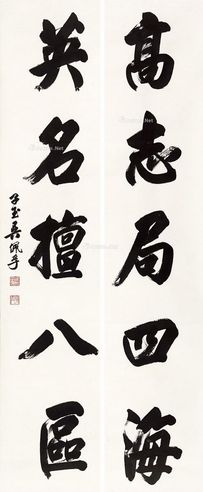 高志局四海
英名擅八區
子玉吳佩孚